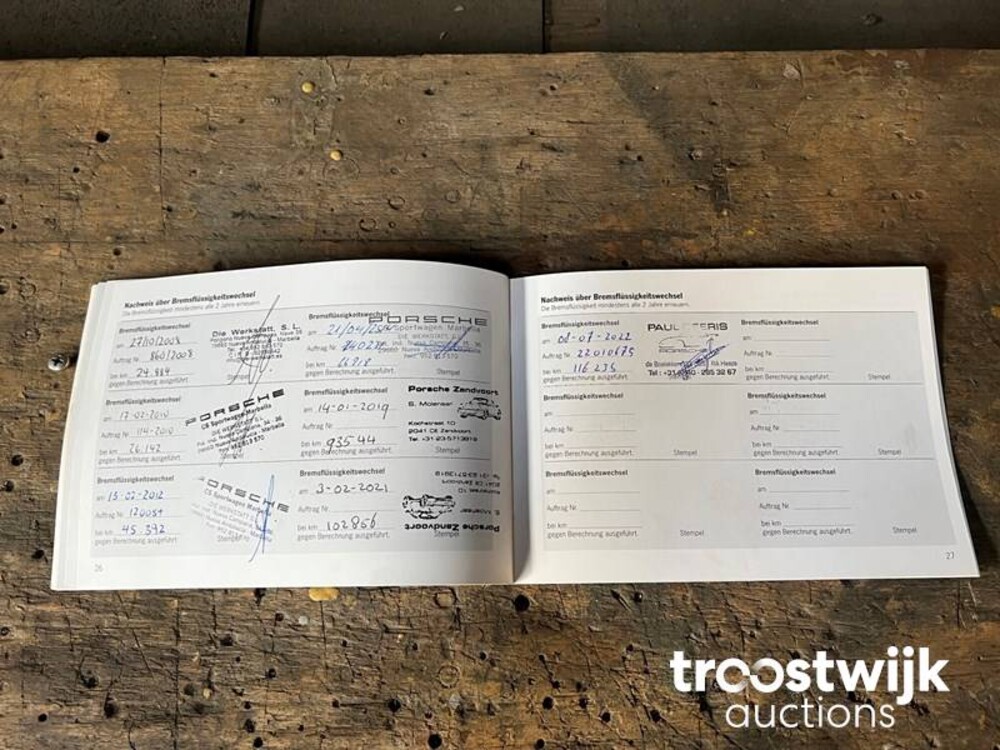 Nachweis über Bremsflüssigkeitswechsel
Die Bremsflüssigkeit mindestens alle 2 Jahre erneuern.
Bremsflüssigkeitswechsel
am 27/10/2008
Auftrag Nr. 860/2008
bei km 24.984
gegen Berechnung ausgeführt. Stempel
Die Werkstatt, S.L.
Bremsflüssigkeitswechsel
am 17-02-2010
Auftrag Nr. 114-2010
bei km 26.142
gegen Berechnung ausgeführt.
PORSCHE
CS Sportwagen Marbella
DIE WERKSTATT S.L.
Bremsflüssigkeitswechsel
am 13-02-2012
Auftrag Nr. 120081
bei km 45.392
gegen Berechnung ausgeführt. Stempel
PORSCHE
CS Sportwagen Marbella
Bremsflüssigkeitswechsel
am 21/04/2014
Auftrag Nr.
bei km
gegen Berechnung ausgeführt. Stempel
PORSCHE
Sportwagen Marbella
DIE WERKSTATT
Bremsflüssigkeitswechsel
am 14-01-2019
Auftrag Nr.
bei km 93544
gegen Berechnung ausgeführt. Stempel
Porsche Zandvoort
S. Molenaar
Kochstraat 10
2041 CE Zandvoort
Tel. +31 23-5713819
Bremsflüssigkeitswechsel
am 3-02-2021
Auftrag Nr.
bei km 102856
gegen Berechnung ausgeführt. Stempel
Porsche Zandvoort
26
Nachweis über Bremsflüssigkeitswechsel
Die Bremsflüssigkeit mindestens alle 2 Jahre erneuern.
Bremsflüssigkeitswechsel
am 08-07-2022
Auftrag Nr. 22010675
bei km 116235
gegen Berechnung ausgeführt.
PAUL
Bremsflüssigkeitswechsel
am
Auftrag Nr.
bei km
gegen Berechnung ausgeführt. Stempel
Bremsflüssigkeitswechsel
am
Auftrag Nr.
bei km
gegen Berechnung ausgeführt. Stempel
Bremsflüssigkeitswechsel
am
Auftrag Nr.
bei km
gegen Berechnung ausgeführt. Stempel
Bremsflüssigkeitswechsel
am
Auftrag Nr.
bei km
gegen Berechnung ausgeführt. Stempel
Bremsflüssigkeitswechsel
am
Auftrag Nr.
bei km
gegen Berechnung ausgeführt. Stempel
27
troostwijk
auctions